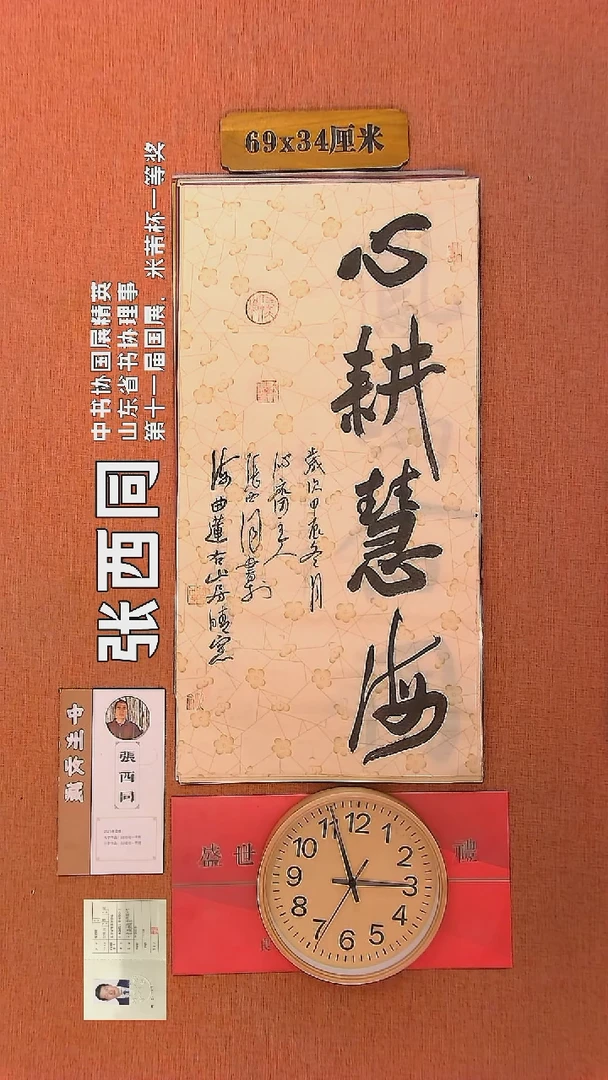 69x34厘米
心耕慧海
歲次甲辰冬月
心齋主人
張西同書於
海曲蓮右山房晴窓
中书协国展精英
山东省书协理事
第十一届国展、米芾杯一等奖
张西同
張西同
盛世
禮
12
1
2
3
4
5
6
7
8
9
10
11